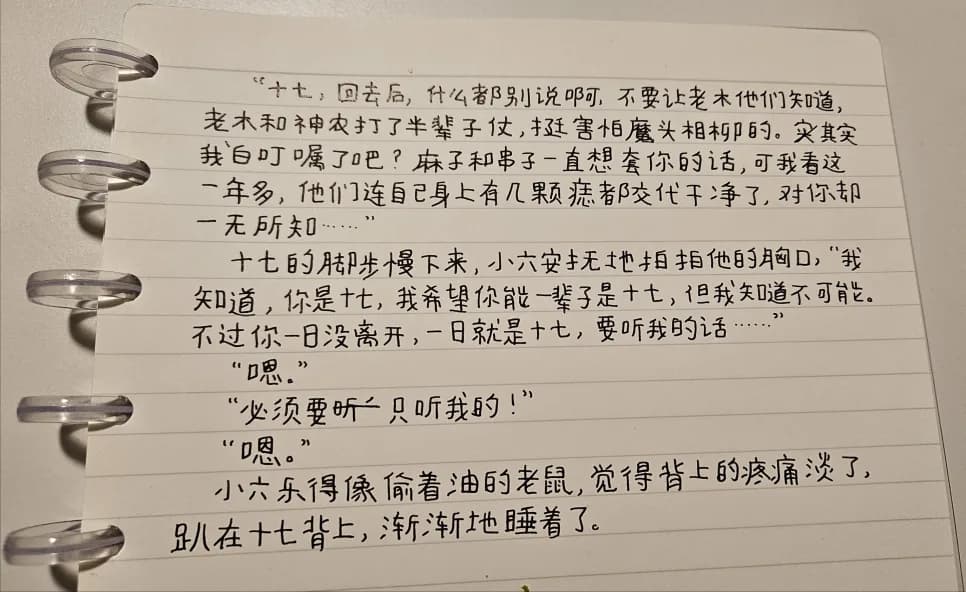 “十七，回去后，什么都别说啊，不要让老木他们知道，
老木和神农打了半辈子仗，挺害怕魔头相柳的。实其实
我白叮嘱了吧？麻子和串子一直想套你的话，可我看这
一年多，他们连自己身上有几颗痣都交代干净了，对你却
一无所知……”
十七的脚步慢下来，小六安抚地拍拍他的胸口，“我
知道，你是十七，我希望你能一辈子是十七，但我知道不可能。
不过你一日没离开，一日就是十七，要听我的话……”
“嗯。”
“必须要听 只听我的！”
“嗯。”
小六乐得像偷着油的老鼠，觉得背上的疼痛淡了，
趴在十七背上，渐渐地睡着了。